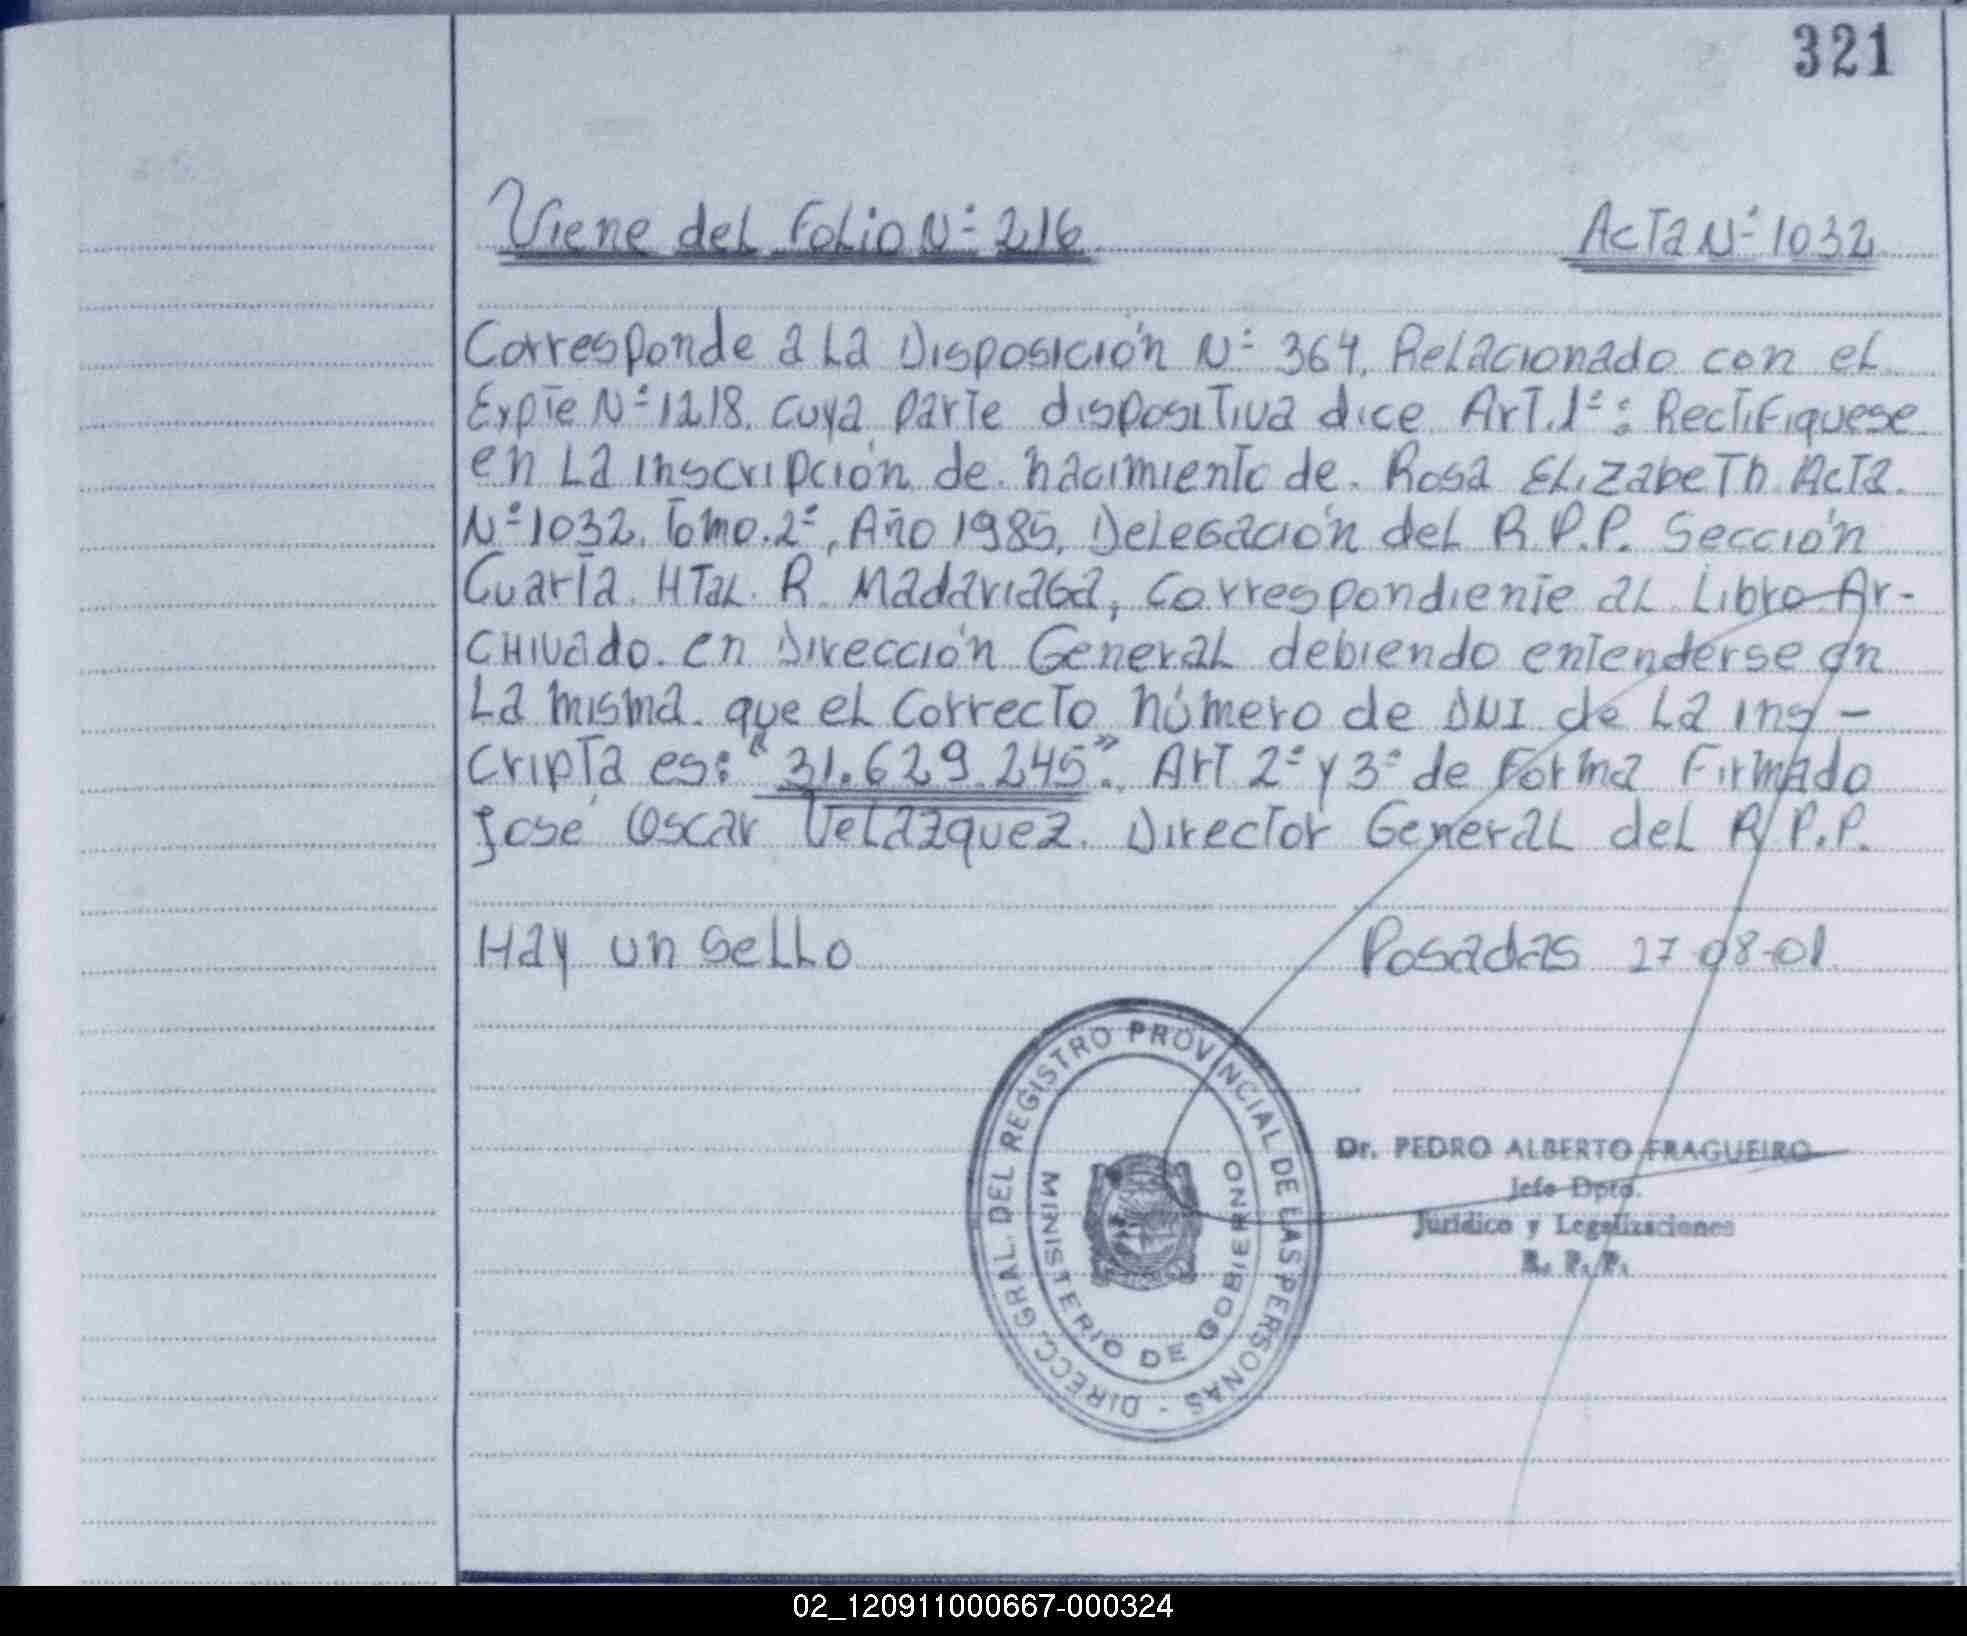 321
Viene del Folio Nº 216
Acta Nº 1032
Corresponde a la Disposición Nº 364. Relacionado con el
Expte Nº 1218. cuya parte dispositiva dice Art. 1º: Rectifiquese
en la inscripción de nacimiento de Rosa Elizabeth Acta
Nº 1032. Tomo. 2º, Año 1985, Delegación del R.P.P. Sección
Cuarta. Htal. R. Madariaga, Correspondiente al Libro Ar-
chivado en Dirección General debiendo entenderse en
la misma que el correcto número de DNI de la ins-
cripta es: "31.629.245". Art 2º y 3º de Forma Firmado
José Oscar Velazquez. Director General del R.P.P.
Hay un Sello
Posadas 27-08-01
DIRECC. GRAL. DEL REGISTRO PROVINCIAL DE LAS PERSONAS -
MINISTERIO DE GOBIERNO
Dr. PEDRO ALBERTO FRAGUEIRO
Jefe Dpto.
Jurídico y Legalizaciones
R. P. P.
02_120911000667-000324